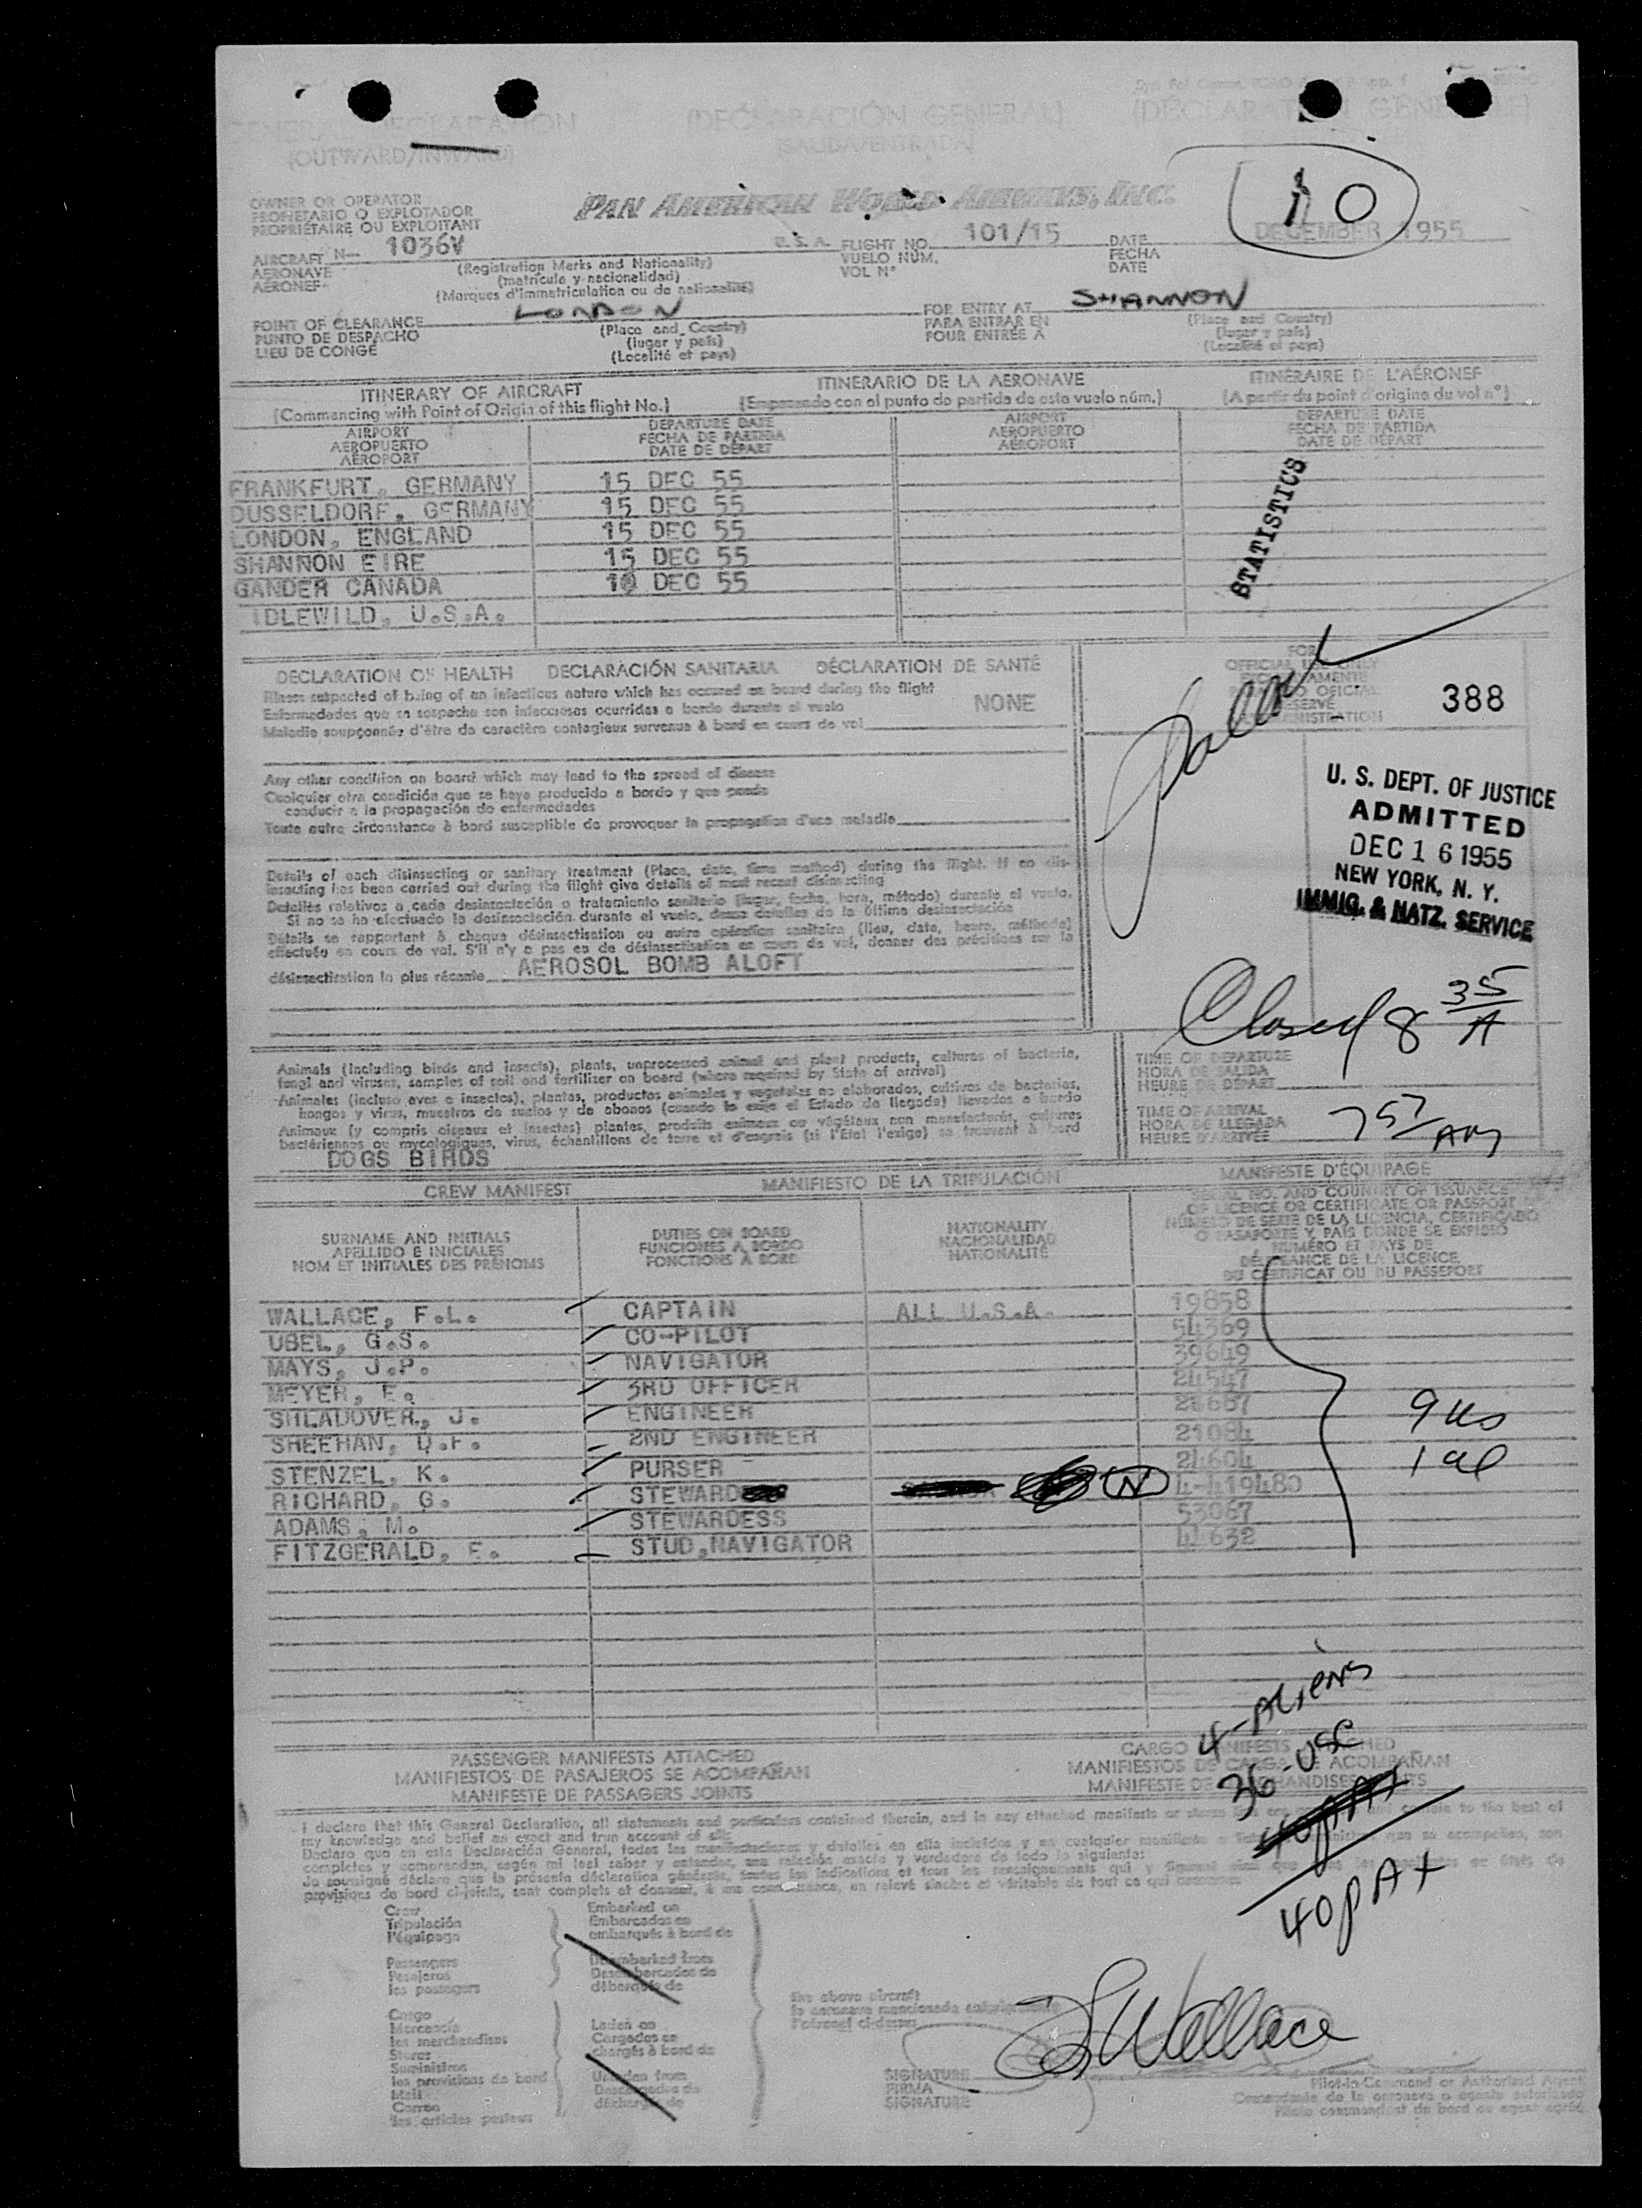 GENERAL DECLARATION
(OUTWARD/INWARD)
(DECLARACIÓN GENERAL)
(SALIDA/ENTRADA)
(DÉCLARATION GÉNÉRALE)
OWNER OR OPERATOR
PROPIETARIO O EXPLOTADOR
PROPRIÉTAIRE OU EXPLOITANT
PAN AMERICAN WORLD AIRWAYS, INC.
10
AIRCRAFT N— 1036V U.S.A.
AERONAVE
AÉRONEF
(Registration Marks and Nationality)
(matrícula y nacionalidad)
(Marques d'immatriculation ou de nationalité)
FLIGHT NO. 101/15
VUELO NÚM.
VOL N°
DATE DECEMBER 1955
FECHA
DATE
POINT OF CLEARANCE LONDON
PUNTO DE DESPACHO
LIEU DE CONGÉ
(Place and Country)
(lugar y país)
(Localité et pays)
FOR ENTRY AT SHANNON
PARA ENTRAR EN
POUR ENTRÉE À
(Place and Country)
(lugar y país)
(Localité et pays)
ITINERARY OF AIRCRAFT ITINERARIO DE LA AERONAVE ITINÉRAIRE DE L'AÉRONEF
(Commencing with Point of Origin of this flight No.) (Empezando con el punto de partida de este vuelo núm.) (A partir du point d'origine du vol n°)
AIRPORT
AEROPUERTO
AÉROPORT
DEPARTURE DATE
FECHA DE PARTIDA
DATE DE DÉPART
AIRPORT
AEROPUERTO
AÉROPORT
DEPARTURE DATE
FECHA DE PARTIDA
DATE DE DÉPART
FRANKFURT, GERMANY 15 DEC 55
DUSSELDORF, GERMANY 15 DEC 55
LONDON, ENGLAND 15 DEC 55
SHANNON EIRE 15 DEC 55
GANDER CANADA DEC 55
IDLEWILD, U.S.A.
STATISTICS
DECLARATION OF HEALTH DECLARACIÓN SANITARIA DÉCLARATION DE SANTÉ
Illness suspected of being of an infectious nature which has occured on board during the flight
Enfermedades que se sospecha son infecciosas ocurridas a bordo durante el vuelo
Maladie soupçonnée d'être de caractère contagieux survenue à bord en cours de vol
NONE
FOR
OFFICIAL USE ONLY
388
Any other condition on board which may lead to the spread of disease
Cualquier otra condición que se haya producido a bordo y que pueda
conducir a la propagación de enfermedades
Toute autre circonstance à bord susceptible de provoquer la propagation d'une maladie
U. S. DEPT. OF JUSTICE
ADMITTED
DEC 16 1955
NEW YORK, N. Y.
IMMIG. & NATZ. SERVICE
Details of each disinsecting or sanitary treatment (Place, date, time method) during the flight. If no dis-
insecting has been carried out during the flight give details of most recent disinsecting
Detalles relativos a cada desinsectación o tratamiento sanitario (lugar, fecha, hora, método) durante el vuelo.
Si no se ha efectuado la desinsectación durante el vuelo, dense detalles de la última desinsectación
Détails se rapportant à chaque désinsectisation ou autre opération sanitaire (lieu, date, heure, méthode)
effectuée en cours de vol. S'il n'y a pas eu de désinsectisation en cours de vol, donner des précisions sur la
désinsectisation la plus récente AEROSOL BOMB ALOFT
Closed 8 35/A
Animals (including birds and insects), plants, unprocessed animal and plant products, cultures of bacteria,
fungi and viruses, samples of soil and fertiliser on board (where required by State of arrival)
Animales (incluso aves e insectos), plantas, productos animales y vegetales no elaborados, cultivos de bacterias,
hongos y virus, muestras de suelos y de abonos (cuando lo exija el Estado de llegada) llevados a bordo
Animaux (y compris oiseaux et insectes) plantes, produits animaux ou végétaux non manufacturés, cultures
bactériennes ou mycologiques, virus, échantillons de terre et d'engrais (si l'État l'exige) se trouvant à bord
DOGS BIRDS
TIME OF DEPARTURE
HORA DE SALIDA
HEURE DE DÉPART
TIME OF ARRIVAL
HORA DE LLEGADA
HEURE D'ARRIVÉE
757 AM
CREW MANIFEST MANIFIESTO DE LA TRIPULACIÓN MANIFESTE D'ÉQUIPAGE
SURNAME AND INITIALS
APELLIDO E INICIALES
NOM ET INITIALES DES PRÉNOMS
DUTIES ON BOARD
FUNCIONES A BORDO
FONCTIONS À BORD
NATIONALITY
NACIONALIDAD
NATIONALITÉ
SERIAL NO. AND COUNTRY OF ISSUANCE
OF LICENCE OR CERTIFICATE OR PASSPORT
NÚMERO DE SERIE DE LA LICENCIA, CERTIFICADO
O PASAPORTE Y PAÍS DONDE SE EXPIDIÓ
NUMÉRO ET PAYS DE
DÉLIVRANCE DE LA LICENCE,
DU CERTIFICAT OU DU PASSEPORT
WALLACE, F.L. CAPTAIN ALL U.S.A. 19858
UBEL, G.S. CO-PILOT 54369
MAYS, J.P. NAVIGATOR 39649
MEYER, E. 3RD OFFICER 24547
SHLADOVER, J. ENGINEER
SHEEHAN, D.F. 2ND ENGINEER 21084
STENZEL, K. PURSER 24604
RICHARD, G. STEWARD N 4-419480
ADAMS, M. STEWARDESS 53067
FITZGERALD, E. STUD.NAVIGATOR 44632
9 us
1 al
4-Aliens
36-USC
40 PAX
PASSENGER MANIFESTS ATTACHED
MANIFIESTOS DE PASAJEROS SE ACOMPAÑAN
MANIFESTE DE PASSAGERS JOINTS
CARGO MANIFESTS ATTACHED
MANIFIESTOS DE CARGA SE ACOMPAÑAN
MANIFESTE DE MARCHANDISES JOINTS
I declare that this General Declaration, all statements and particulars contained therein, and in any attached manifests
my knowledge and belief an exact and true account of all:
Declaro que en esta Declaración General, todas las manifestaciones y detalles en ella incluidos y en cualquier manifiesto
completos y comprenden, según mi leal saber y entender, una relación exacta y verdadera de todo lo siguiente:
Je soussigné déclare que la présente déclaration générale, toutes les indications et tous les renseignements qui y
provisions de bord ci-joints, sont complets et donnent, à ma connaissance, un relevé sincère et véritable de tout ce qui concerne
Crew
Tripulación
l'équipage
Embarked on
Embarcados en
embarqués à bord de
Passengers
Pasajeros
les passagers
Disembarked from
Desembarcados de
débarqués de
Cargo
Mercancía
les marchandises
Stores
Suministros
les provisions de bord
Mail
Correo
les articles postaux
Laden on
Cargados en
chargés à bord de
Unladen from
Descargados de
déchargés de
the above aircraft
la aeronave mencionada
l'aéronef ci-dessus
SIGNATURE
FIRMA
SIGNATURE
F L Wallace
Pilot-in-Command or Authorized Agent
Comandante de la aeronave o agente autorizado
Pilote commandant de bord ou agent agréé